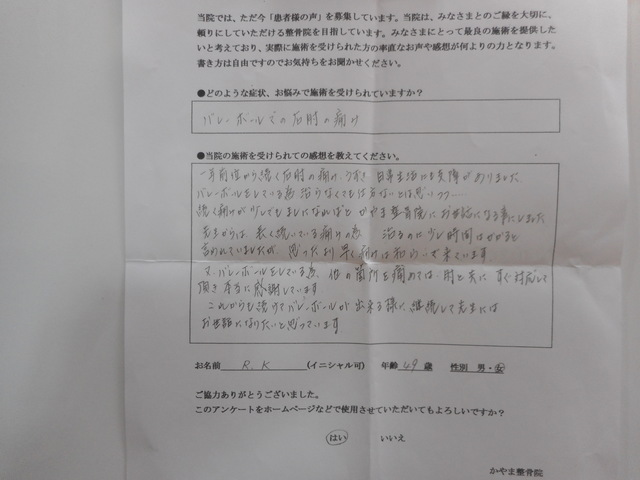 当院では、ただ今「患者様の声」を募集しています。当院は、みなさまとのご縁を大切に、
頼りにしていただける整骨院を目指しています。みなさまにとって最良の施術を提供した
いと考えており、実際に施術を受けられた方の率直なお声や感想が何よりの力となります。
書き方は自由ですのでお気持ちをお聞かせください。
●どのような症状、お悩みで施術を受けられていますか?
バレーボールでの右肘の痛み
●当院の施術を受けられての感想を教えてください。
一年前位から続く右肘の痛み、うずき 日常生活にも支障がありました
バレーボールをしている為 治らなくても仕方ないとは思いつつ…
続く痛みが少しでもましになればと かやま整骨院にお世話になる事にしました
先生からは、長く続いている痛みの為 治るのに少し時間はかかると
言われていましたが、思ったより早く痛みは和らいで来ています。
又、バレーボールをしている為、他の箇所を痛めては 肘と共に すぐ対応して
頂き本当に感謝しています
これからも続けてバレーボールが出来る様に、継続して先生には
お世話になりたいと思っています
お名前 R.K (イニシャル可) 年齢 49 歳 性別 男・女
ご協力ありがとうございました。
このアンケートをホームページなどで使用させていただいてもよろしいですか?
はい いいえ
かやま整骨院